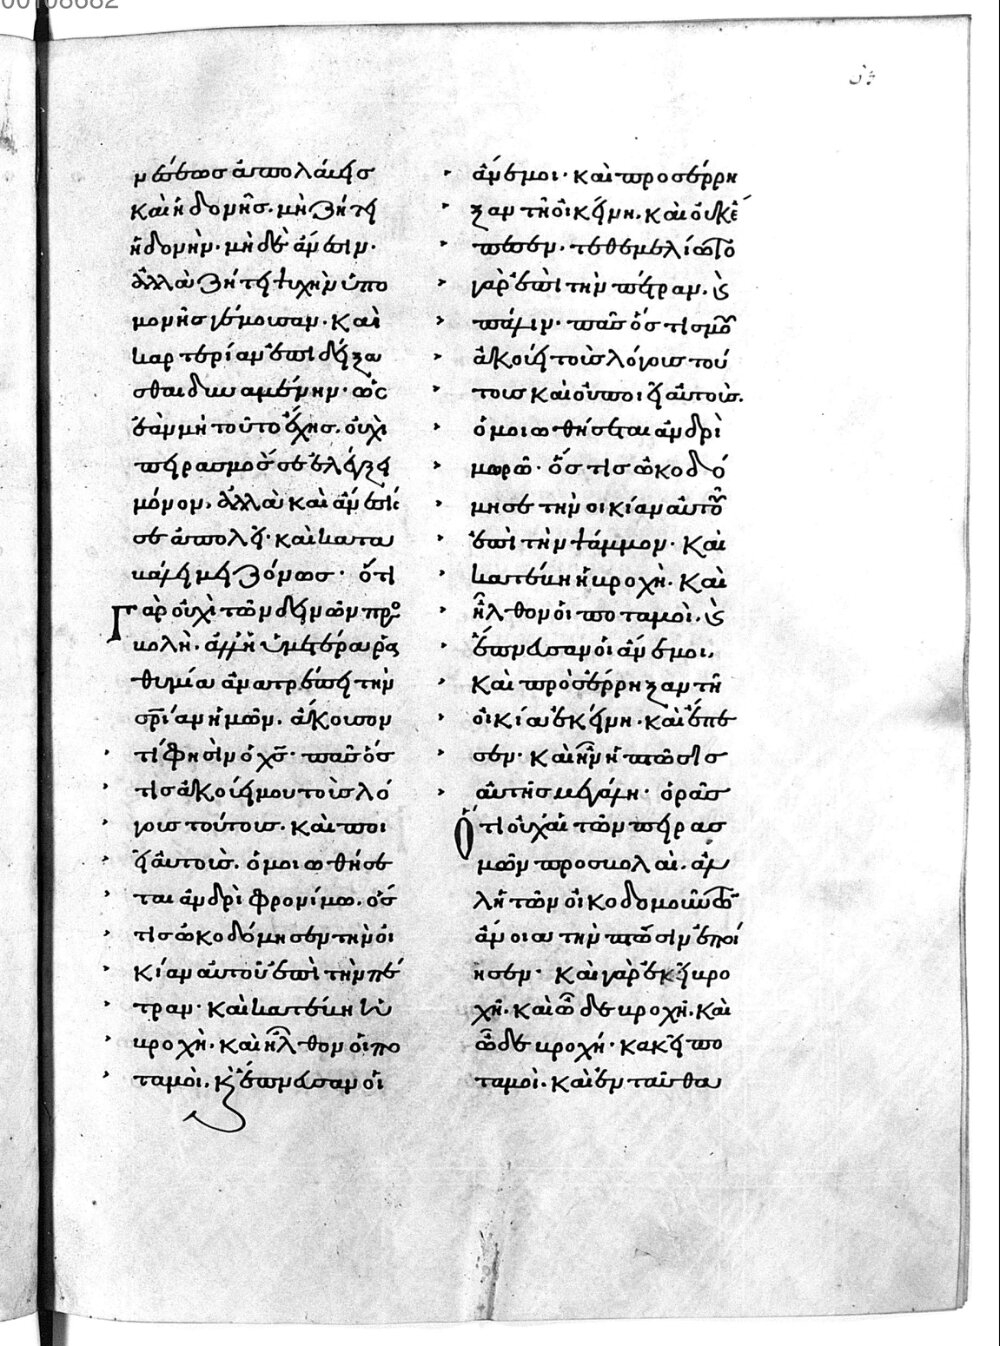 νέσεως ἀπολαύεις
καὶ ἡδονῆς. μὴ ζήτει
ἡδονὴν. μὴ δὲ ἄνεσιν.
ἀλλὰ ζήτει ψυχὴν ὑπο
μονῆς γέμουσαν. καὶ
καρτερίαν ἐπιδείξα
σθαι δυναμένην. ὡς
ἐὰν μὴ τοῦτο ἔχης. οὐχὶ
πειρασμός σε ἐλέγξει
μόνον, ἀλλὰ καὶ ἄνεσίς
σε ἀπολεῖ. καὶ κατα
καλεῖ μειζόνως. ὅτι
γὰρ οὐχὶ τῶν δεινῶν προσ
βολὴ. ἀλλ' ἡ ὑμετέρα ρᾳ
θυμία ἀνατρέπει τὴν
σρίαν ἡμῶν. ἄκουσον
τί φησὶν ὁ χς. πᾶς ὅσ
τις ἀκούει μου τοὺς λό
γους τούτους. καὶ ποι
εῖ αὐτοὺς. ὁμοιωθήσε
ται ἀνδρὶ φρονίμω. ὅσ
τις ὠκοδόμησεν τὴν οἰ
κίαν αὐτοῦ ἐπὶ τὴν πέ
τραν. καὶ κατέβη ἡ
βροχὴ. καὶ ἦλθον οἱ πο
ταμοὶ. κ ἔπνευσαν οἱ
ἄνεμοι. καὶ προσέρρη
ξαν τῆ οἰκία ἐκείνη. καὶ οὐκ ἔ
πεσεν. τεθεμελίωτο
γὰρ ἐπὶ τὴν πέτραν. κ
πάλιν. πᾶς ὅστις μου
ἀκούει τοὺς λόγους τού
τους καὶ οὐ ποιεῖ αὐτοὺς.
ὁμοιωθήσεται ἀνδρὶ
μωρῶ. ὅστις ὠκοδό
μησε τὴν οἰκίαν αὐτοῦ
ἐπὶ τὴν ψάμμον. καὶ
κατέβη ἡ βροχὴ. καὶ
ἦλθον οἱ ποταμοὶ. κ
ἔπνευσαν οἱ ἄνεμοι.
καὶ προσέρρηξαν τῆ
οἰκία ἐκείνη. καὶ ἔπε
σεν. καὶ ἦν ἡ πτῶσις
αὐτῆς μεγάλη. ὁρᾶς
ὅτι οὐχ' αἱ τῶν πειρασ
μῶν προσβολαὶ. ἀλ
λ' ἡ τῶν οἰκοδομούντων
ἄνοια τὴν πτῶσιν ἐποί
ησεν. καὶ γὰρ ἐκεῖ βρο
χὴ. καὶ ὧδε βροχὴ. καὶ
ὧδε βροχή. κακεῖ πο
ταμοὶ. καὶ ἐνταῦθα